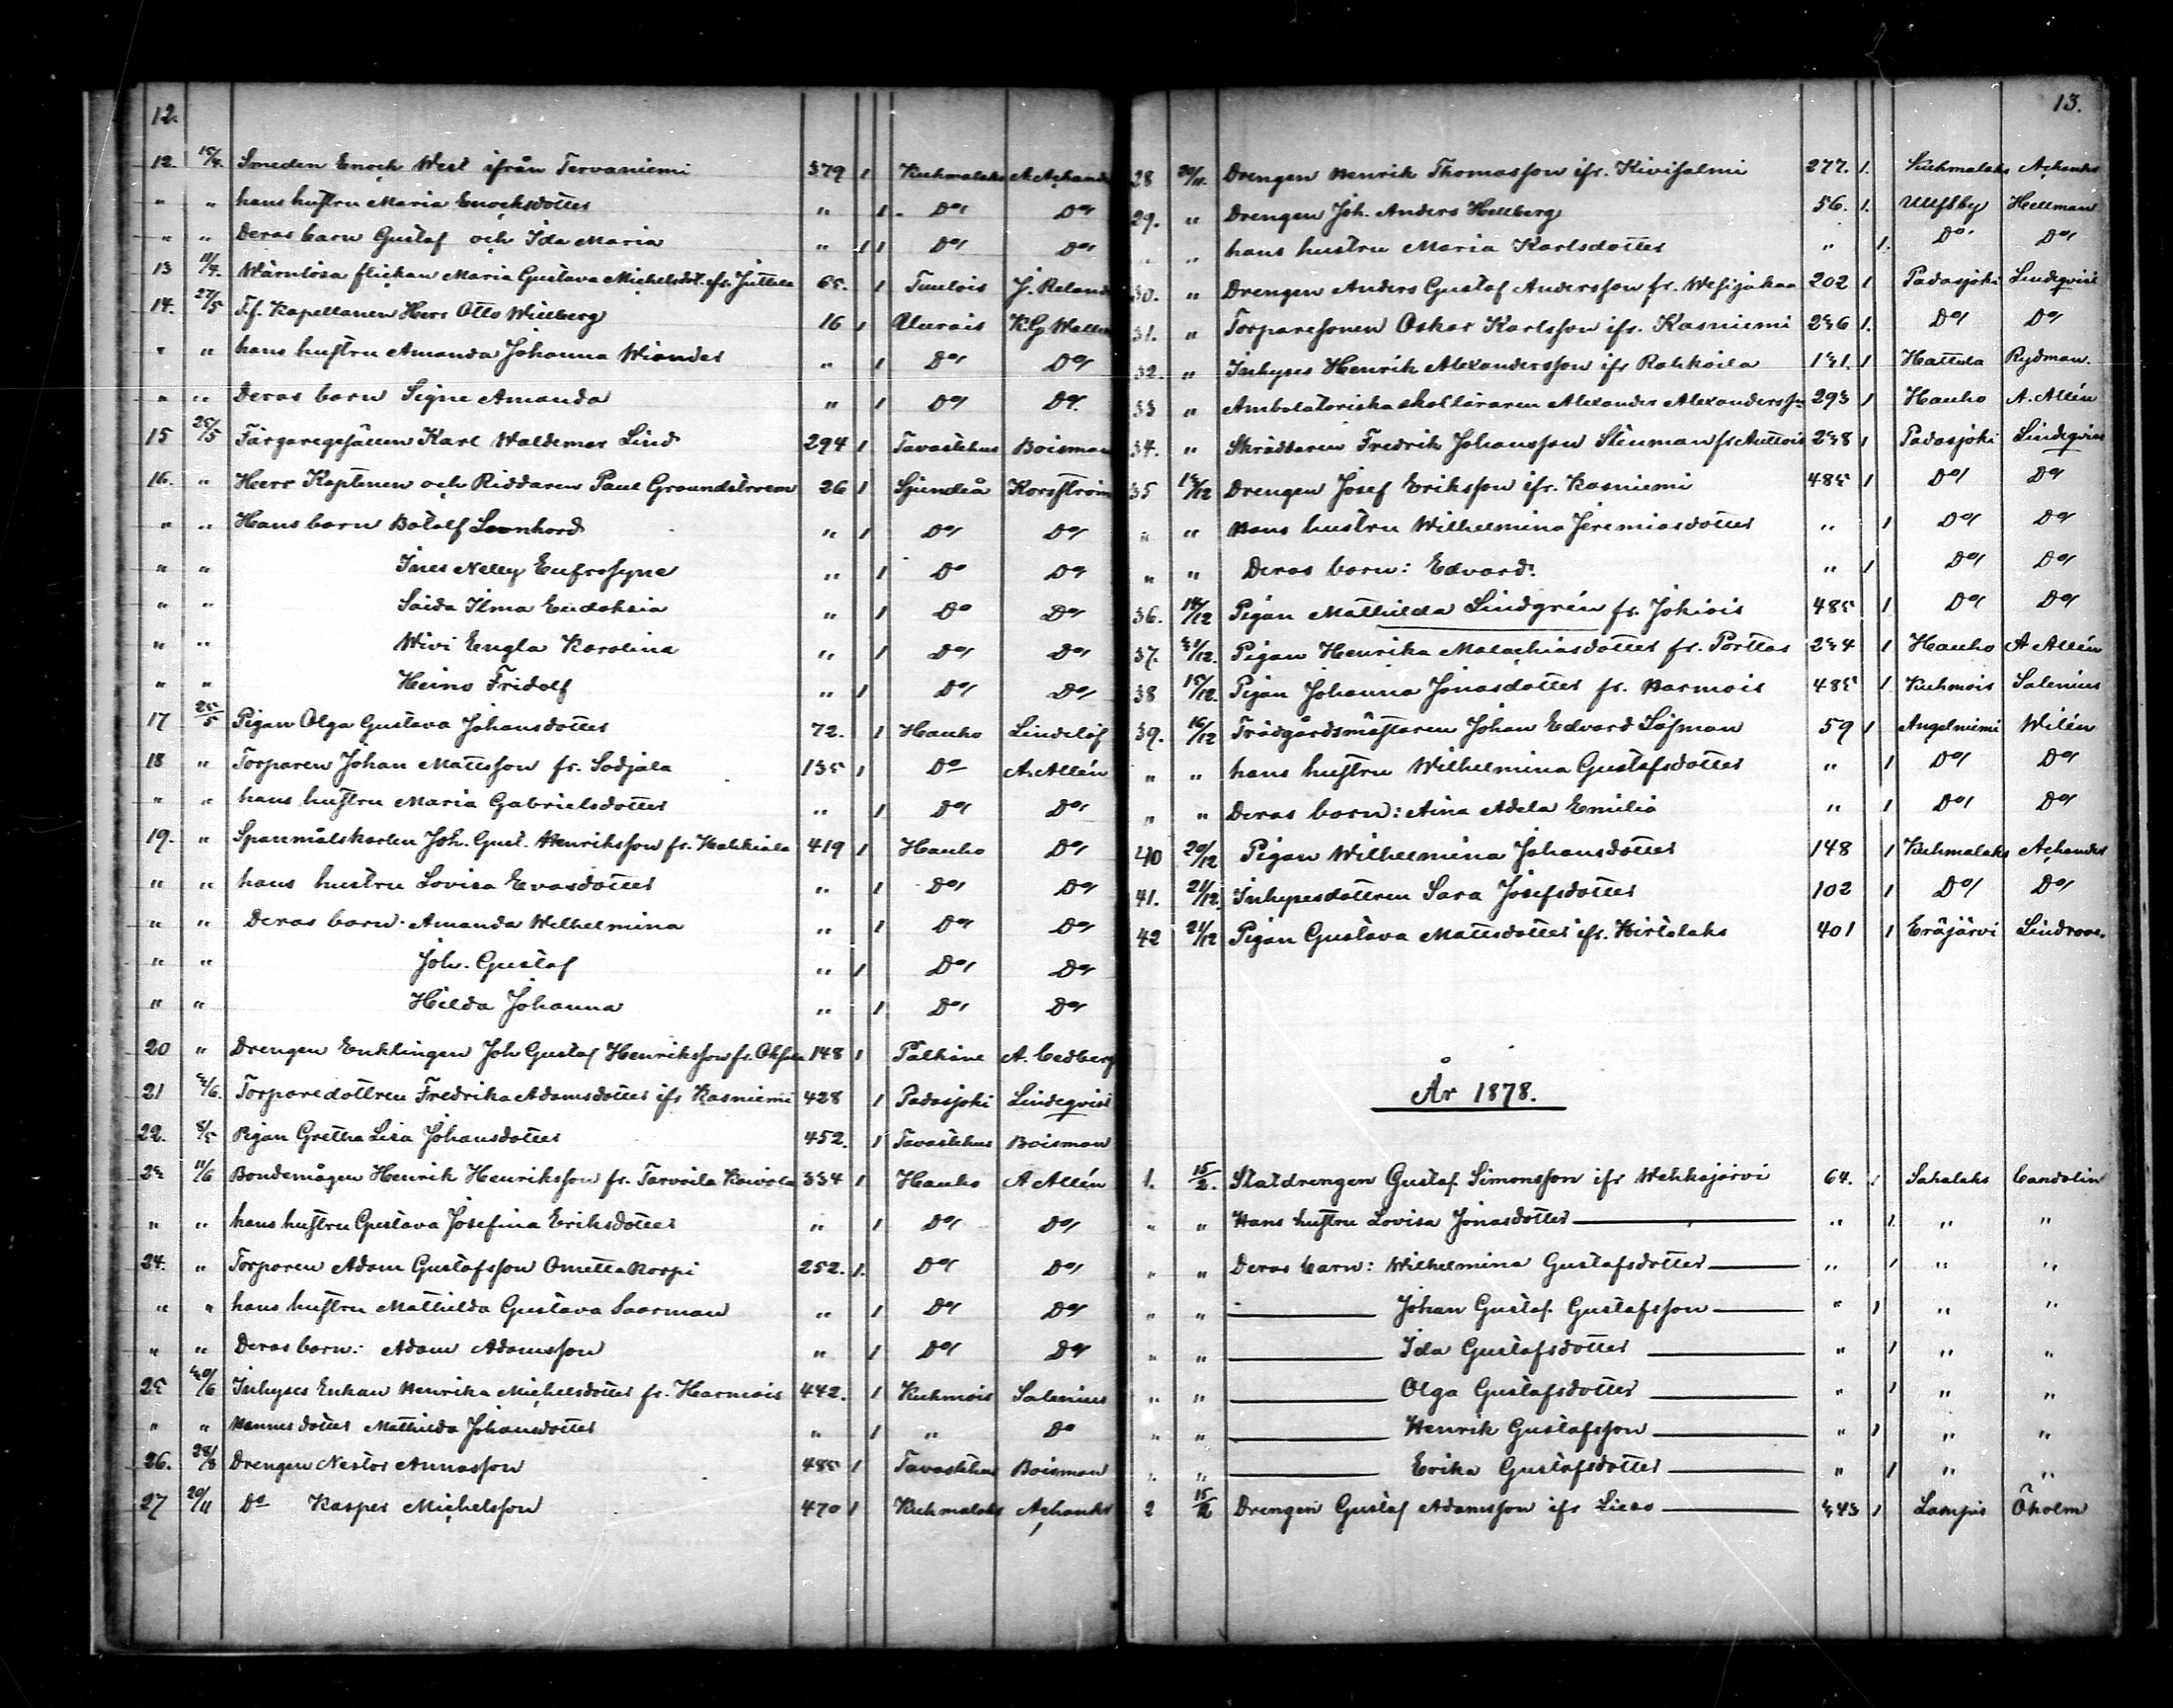 12.
12. 15/4. Smeden Enoch West ifrån Tervaniemi 379 1 Kuhmalaks
" " hans hustru Maria Enochsdotter " 1. Do/ Do/
" " Deras barn Gustaf och Ida Maria " 1 1 Do/ Do/
13 11/4. Wärnlösa flickan Maria Gustava Michelsdot. ifr. Juttila 65. 1 Tuulois
14. 27/5 T.f. Kapellanen Herr Otto Willberg 16 1 K.G.
" " hans hustru Amanda Johanna Wiander " 1 Do/ Do/
" " Deras barn Signe Amanda " 1 Do/ Do/
15 25/5 Färgaregesällen Karl Waldemar Lind 294 1 Tavastehus Boisman
16. " Herr Kaptenen och Riddaren Paul Groundstroem 26 1 Sjundeå Korsström
" " Hans barn Botolf Leonhard " 1 Do/ Do/
" " Ines Nelly Eufrosyne " 1 Do Do/
" " Saida Ilma Eudoksia " 1 Do Do/
" " Wivi Engla Karolina " 1 Do/ Do/
" " Heino Fridolf " 1 Do/ Do/
17 25/5 Pigan Olga Gustava Johansdotter 72. 1 Hauho Lindelöf
18 " Torparen Johan Mattsson fr. Sodjala 135 1 Do A. Allén
" " hans hustru Maria Gabrielsdotter " 1 Do/ Do/
19. " Spanmålskarlen Joh. Gust. Henriksson fr. Hahkiala 419 1 Hauho Do/
" " hans hustru Lovisa Evasdotter " 1 Do/ Do/
" " Deras barn: Amanda Wilhelmina " 1 Do/ Do/
" " Joh. Gustaf " 1 Do/ Do/
" " Hilda Johanna " 1 Do/ Do/
20 " Drengen Enklingen Joh Gustaf Henriksson fr. 148 1 Pälkäne A. Cedberg
21 Torparedottren Fredrika Adamsdotter ifr Kasniemi 428 1 Padasjoki Lindeqvist
22. 8/5 Pigan Gretha Lisa Johansdotter 452. 1 Tavastehus Boisman
23 11/6 Bondemågen Henrik Henriksson fr. Torvoila 334 1 Hauho A Allén
" " hans hustru Gustava Josefina Eriksdotter " 1 Do/ Do/
24. " Torparen Adam Gustafsson Ometta Korpi 252. 1. Do/ Do/
" " hans hustru Mathilda Gustava Saarman " 1 Do/ Do/
" " Deras barn: Adam Adamsson " 1 Do/ Do/
25 Inhyses Enkan Henrika Michelsdotter fr. Harmois 442. 1 Kuhmois Salenius
" " Hennes dotter Mathilda Johansdotter " 1 " Do
26. Drengen Nestor Annasson 485 1 Tavastehus Boisman
27 20/11 Do Kasper Michelsson 470 1 Kuhmalaks
13.
28 20/11. Drengen Henrik Thomasson ifr. Kivisalmi 277. 1. Kuhmalaks
29. " Drengen Joh. Anders Hellberg 56. 1. Ulfsby Hellman
" " hans hustru Maria Karlsdotter " 1. Do/ Do/
30. " Drengen Anders Gustaf Andersson fr. Wesijakaa 202 1 Padasjoki Lindeqvist
31. " Torparesonen Oskar Karlsson ifr. Kasniemi 236 1. Do/ Do/
32. " Inhyses Henrik Alexandersson ifr Rahkoila 131. 1 Hattula Rydman.
33 " Ambulatoriska skolläraren Alexander Alexandersson 293 1 Hauho A. Allén
34. " Skräddaren Fredrik Johansson Stenman fr Auttois 238 1 Padasjoki Lindeqvist
35 Drengen Josef Eriksson ifr. Kasniemi 485 1 Do/ Do/
" " Hans hustru Wilhelmina Jeremiasdotter " 1 Do/ Do/
" " Deras barn: Edvard. " 1 Do/ Do/
36. 14/12 Pigan Mathilda Lindgrén fr. Jokiois 485 1 Do/ Do/
37. Pigan Henrika Malachiasdotter fr. Porttas 234 1 Hauho A Allén
38 15/12. Pigan Johanna Jonasdotter fr. Harmois 485 1 Kuhmois Salenius
39. 16/12 Trädgårdsmästaren Johan Edvard Löfman 59 1 Angelniemi Wilén
" " hans hustru Wilhelmina Gustafsdotter " 1 Do/ Do/
" " Deras barn: Aina Adela Emilia " 1 Do/ Do/
40 20/12 Pigan Wilhelmina Johansdotter 148 1 Kuhmalaks
41. 21/12. Inhysesdottren Sara Josefsdotter 102 1 Do/ Do/
42 21/12 Pigan Gustava Mattsdotter ifr. Kirtalaks 401 1 Eräjärvi Lindroos.
År 1878.
1. 15/2. Statdrengen Gustaf Simonsson ifr Wehkajärvi 64. 1 Sahalaks Candolin
" " Hans hustru Lovisa Jonasdotter " 1 " "
" " Deras barn: Wilhelmina Gustafsdotter " 1 " "
" " Johan Gustaf Gustafsson " 1 " "
" " Ida Gustafsdotter " 1 " "
" " Olga Gustafsdotter " 1 " "
" " Henrik Gustafsson " 1 " "
" " Erika Gustafsdotter " 1 " "
2 15/2 Drengen Gustaf Adamsson ifr Lieso 343 1 Lampis Öholm